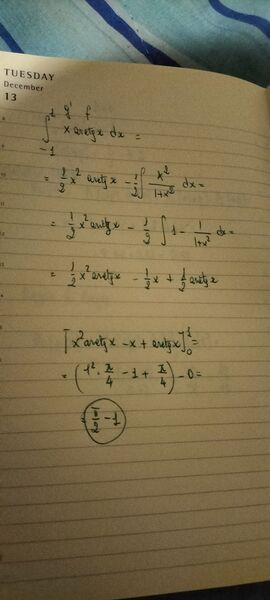 TUESDAY
December
13
g' f
∫₋₁¹ x arctg x dx =
= 1/2 x² arctg x - 1/2 ∫ x²/(1+x²) dx =
= 1/2 x² arctg x - 1/2 ∫ 1 - 1/(1+x²) dx =
= 1/2 x² arctg x - 1/2 x + 1/2 arctg x
[x² arctg x - x + arctg x]₀¹ =
= (1² · π/4 - 1 + π/4) - 0 =
= π/2 - 1